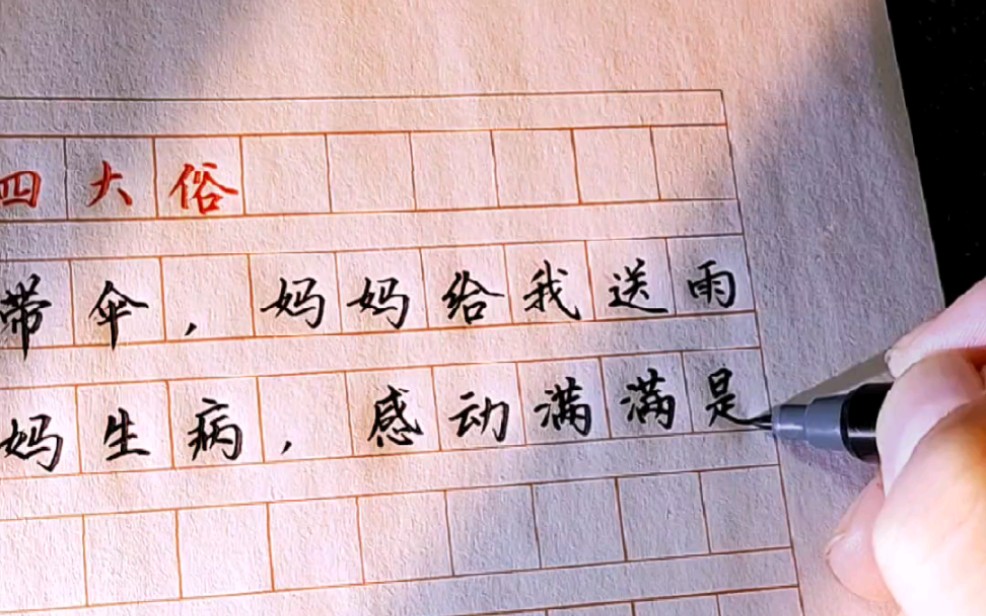 四大俗
带伞，妈妈给我送雨
妈生病，感动满满是